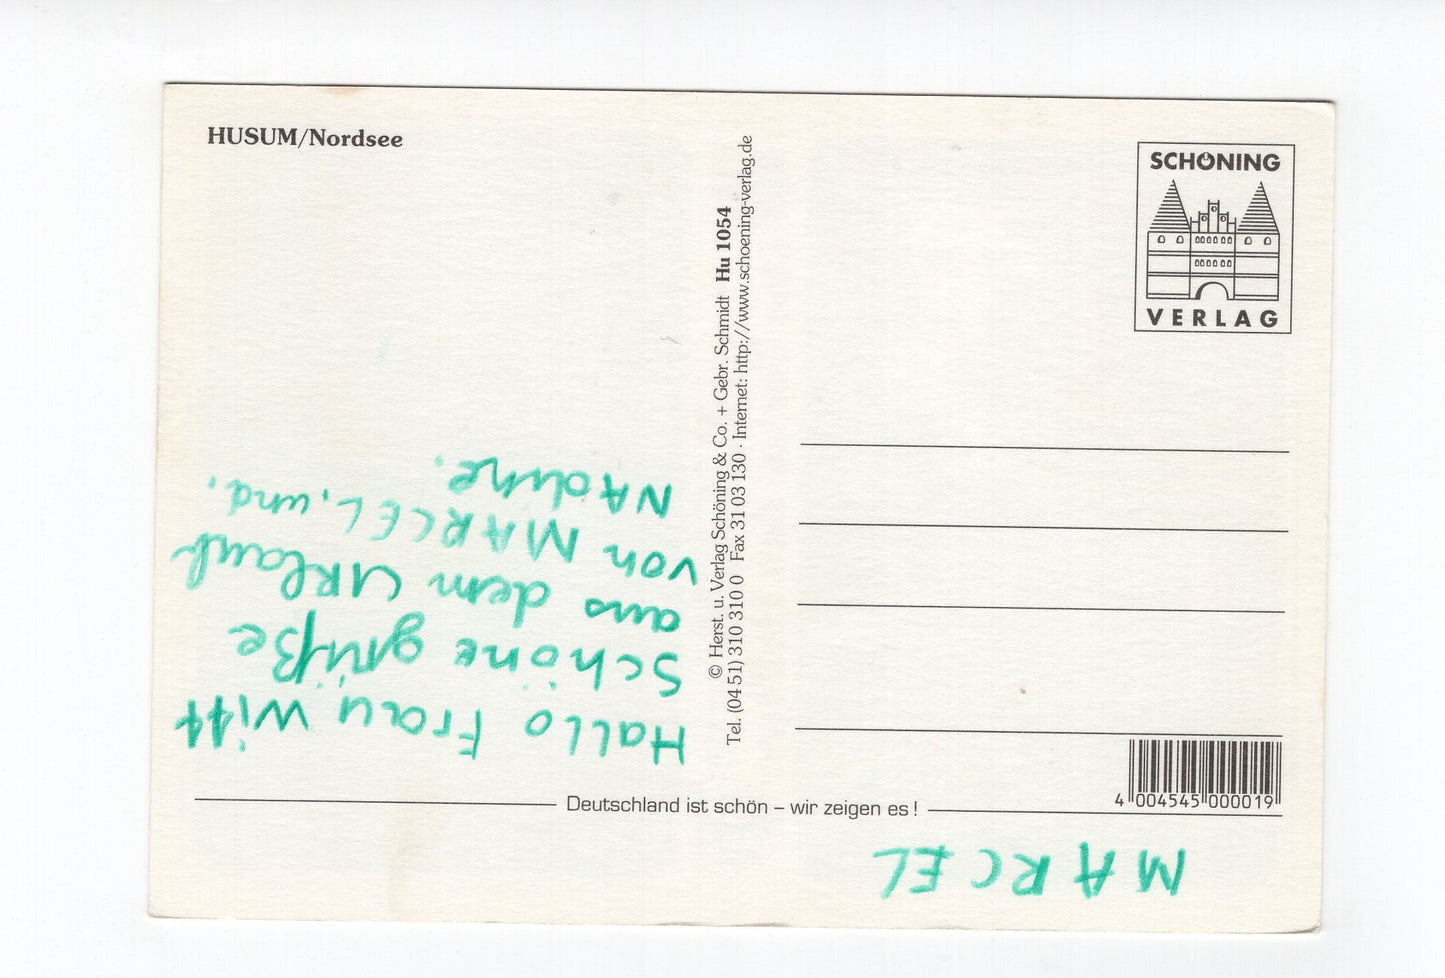 HUSUM/Nordsee
Hallo Frau Witt
Schöne grüße
aus dem URlaub
von MARCEL, und,
NAdine.
© Herst. u. Verlag Schöning & Co. + Gebr. Schmidt Hu 1054
Tel. (04 51) 310 310 0 Fax 31 03 130 · Internet: http://www.schoening-verlag.de
SCHÖNING
VERLAG
4 004545 000019
Deutschland ist schön – wir zeigen es!
MARCEL